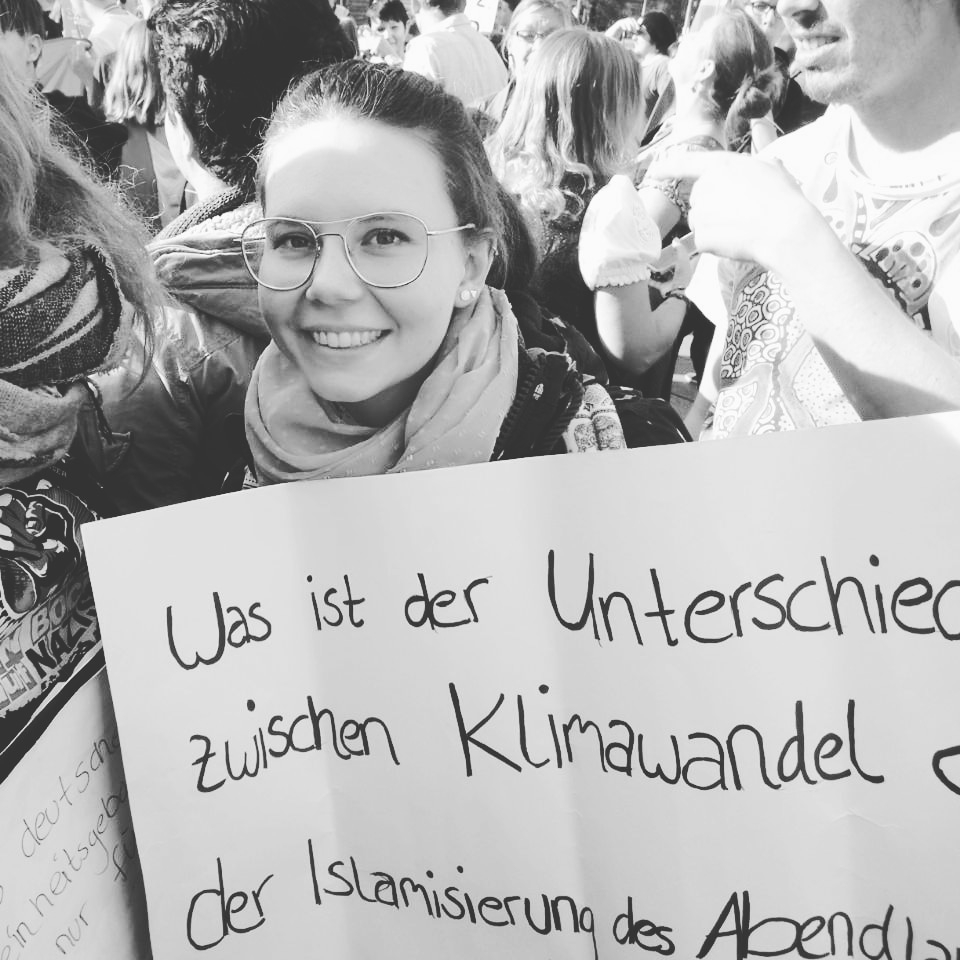 Was ist der Unterschied
zwischen Klimawandel
der Islamisierung des Abendla
deutsche
einheitsgeb
nur
BOC
NAZIS